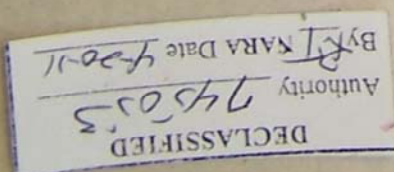 DECLASSIFIED
Authority 745053
By RT NARA Date 4-20-11